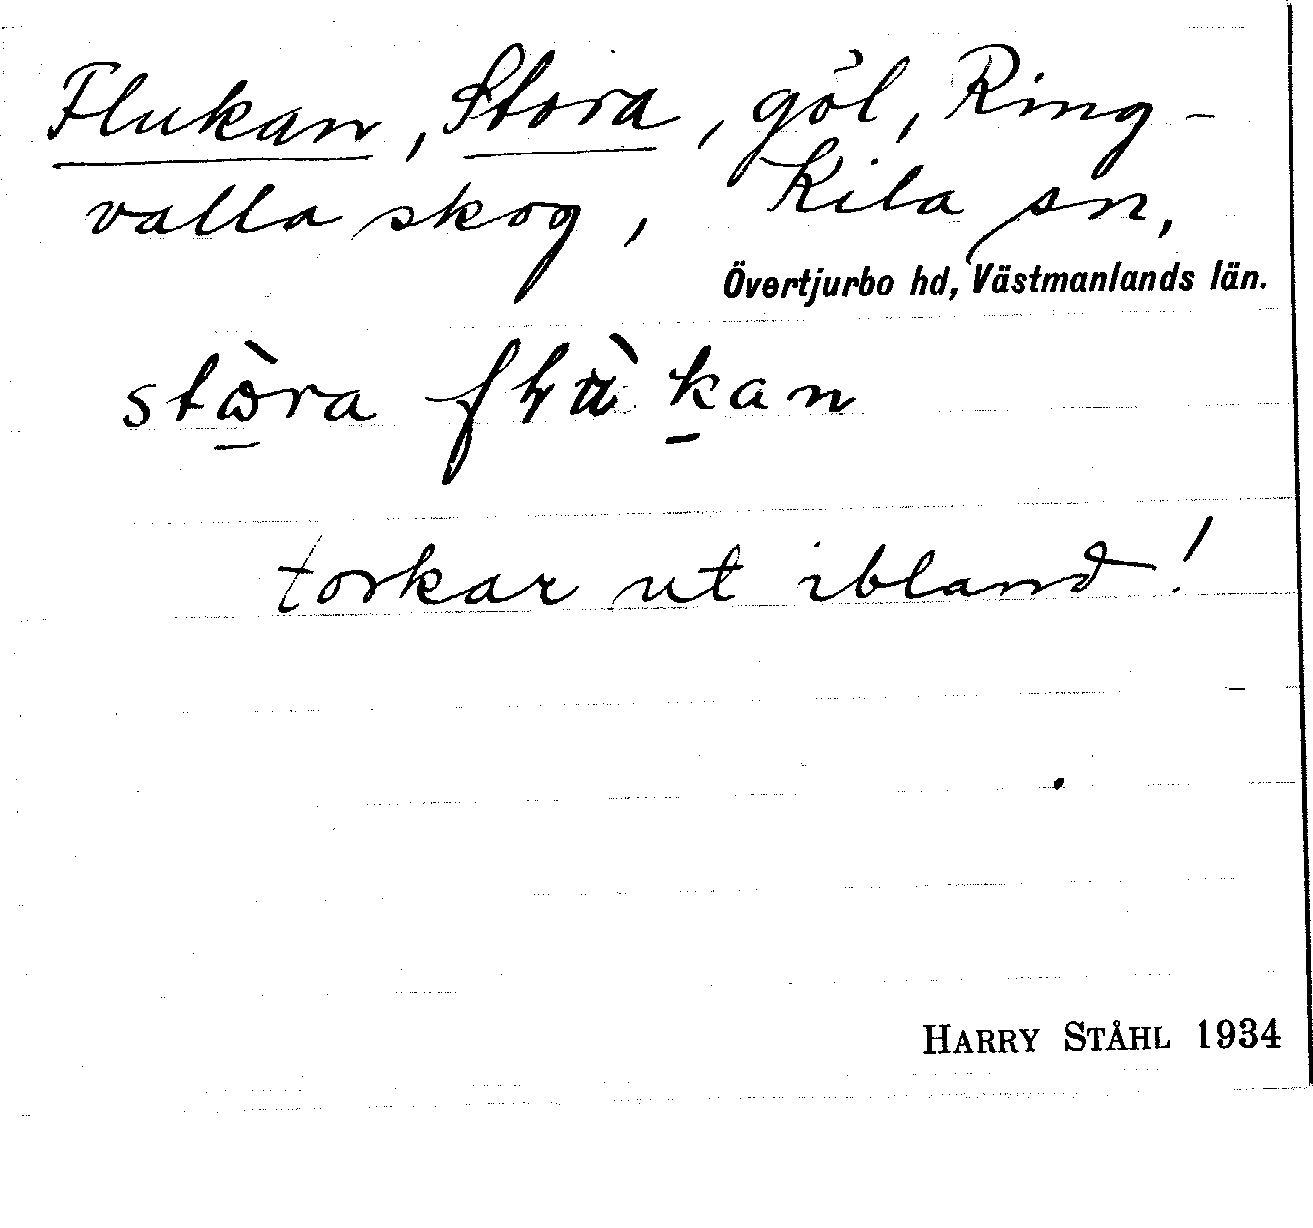 Flukan, Stora, göl, Ring-
valla skog, Kila sn,
Övertjurbo hd, Västmanlands län.
torkar ut ibland!
HARRY STÅHL 1934